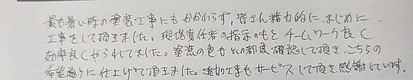 最も暑い時の塗装工事にもかかわらず、皆さん精力的に、まじめに
工事をして頂きました。現場責任者の指示のもとチームワーク良く
効率良くやられてました。塗装の色などの都度確認して頂き、こちらの
希望通りに仕上げて頂きました。追加工事もサービスして頂き感謝しています。